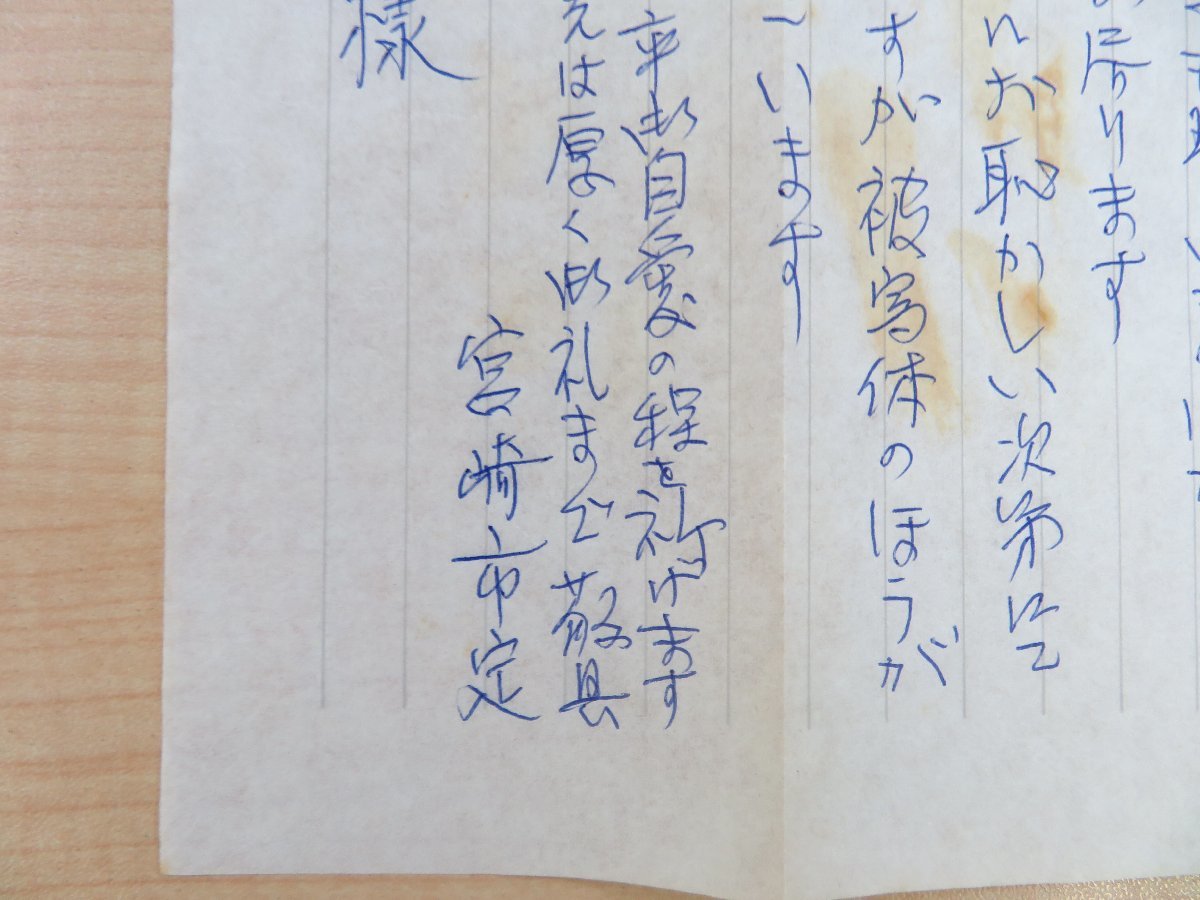 居ります
にお恥かしい次第にて
すが被写体のほうが
います
御自愛の程を祈げます
は厚く御礼まで 敬具
宮崎市定
様